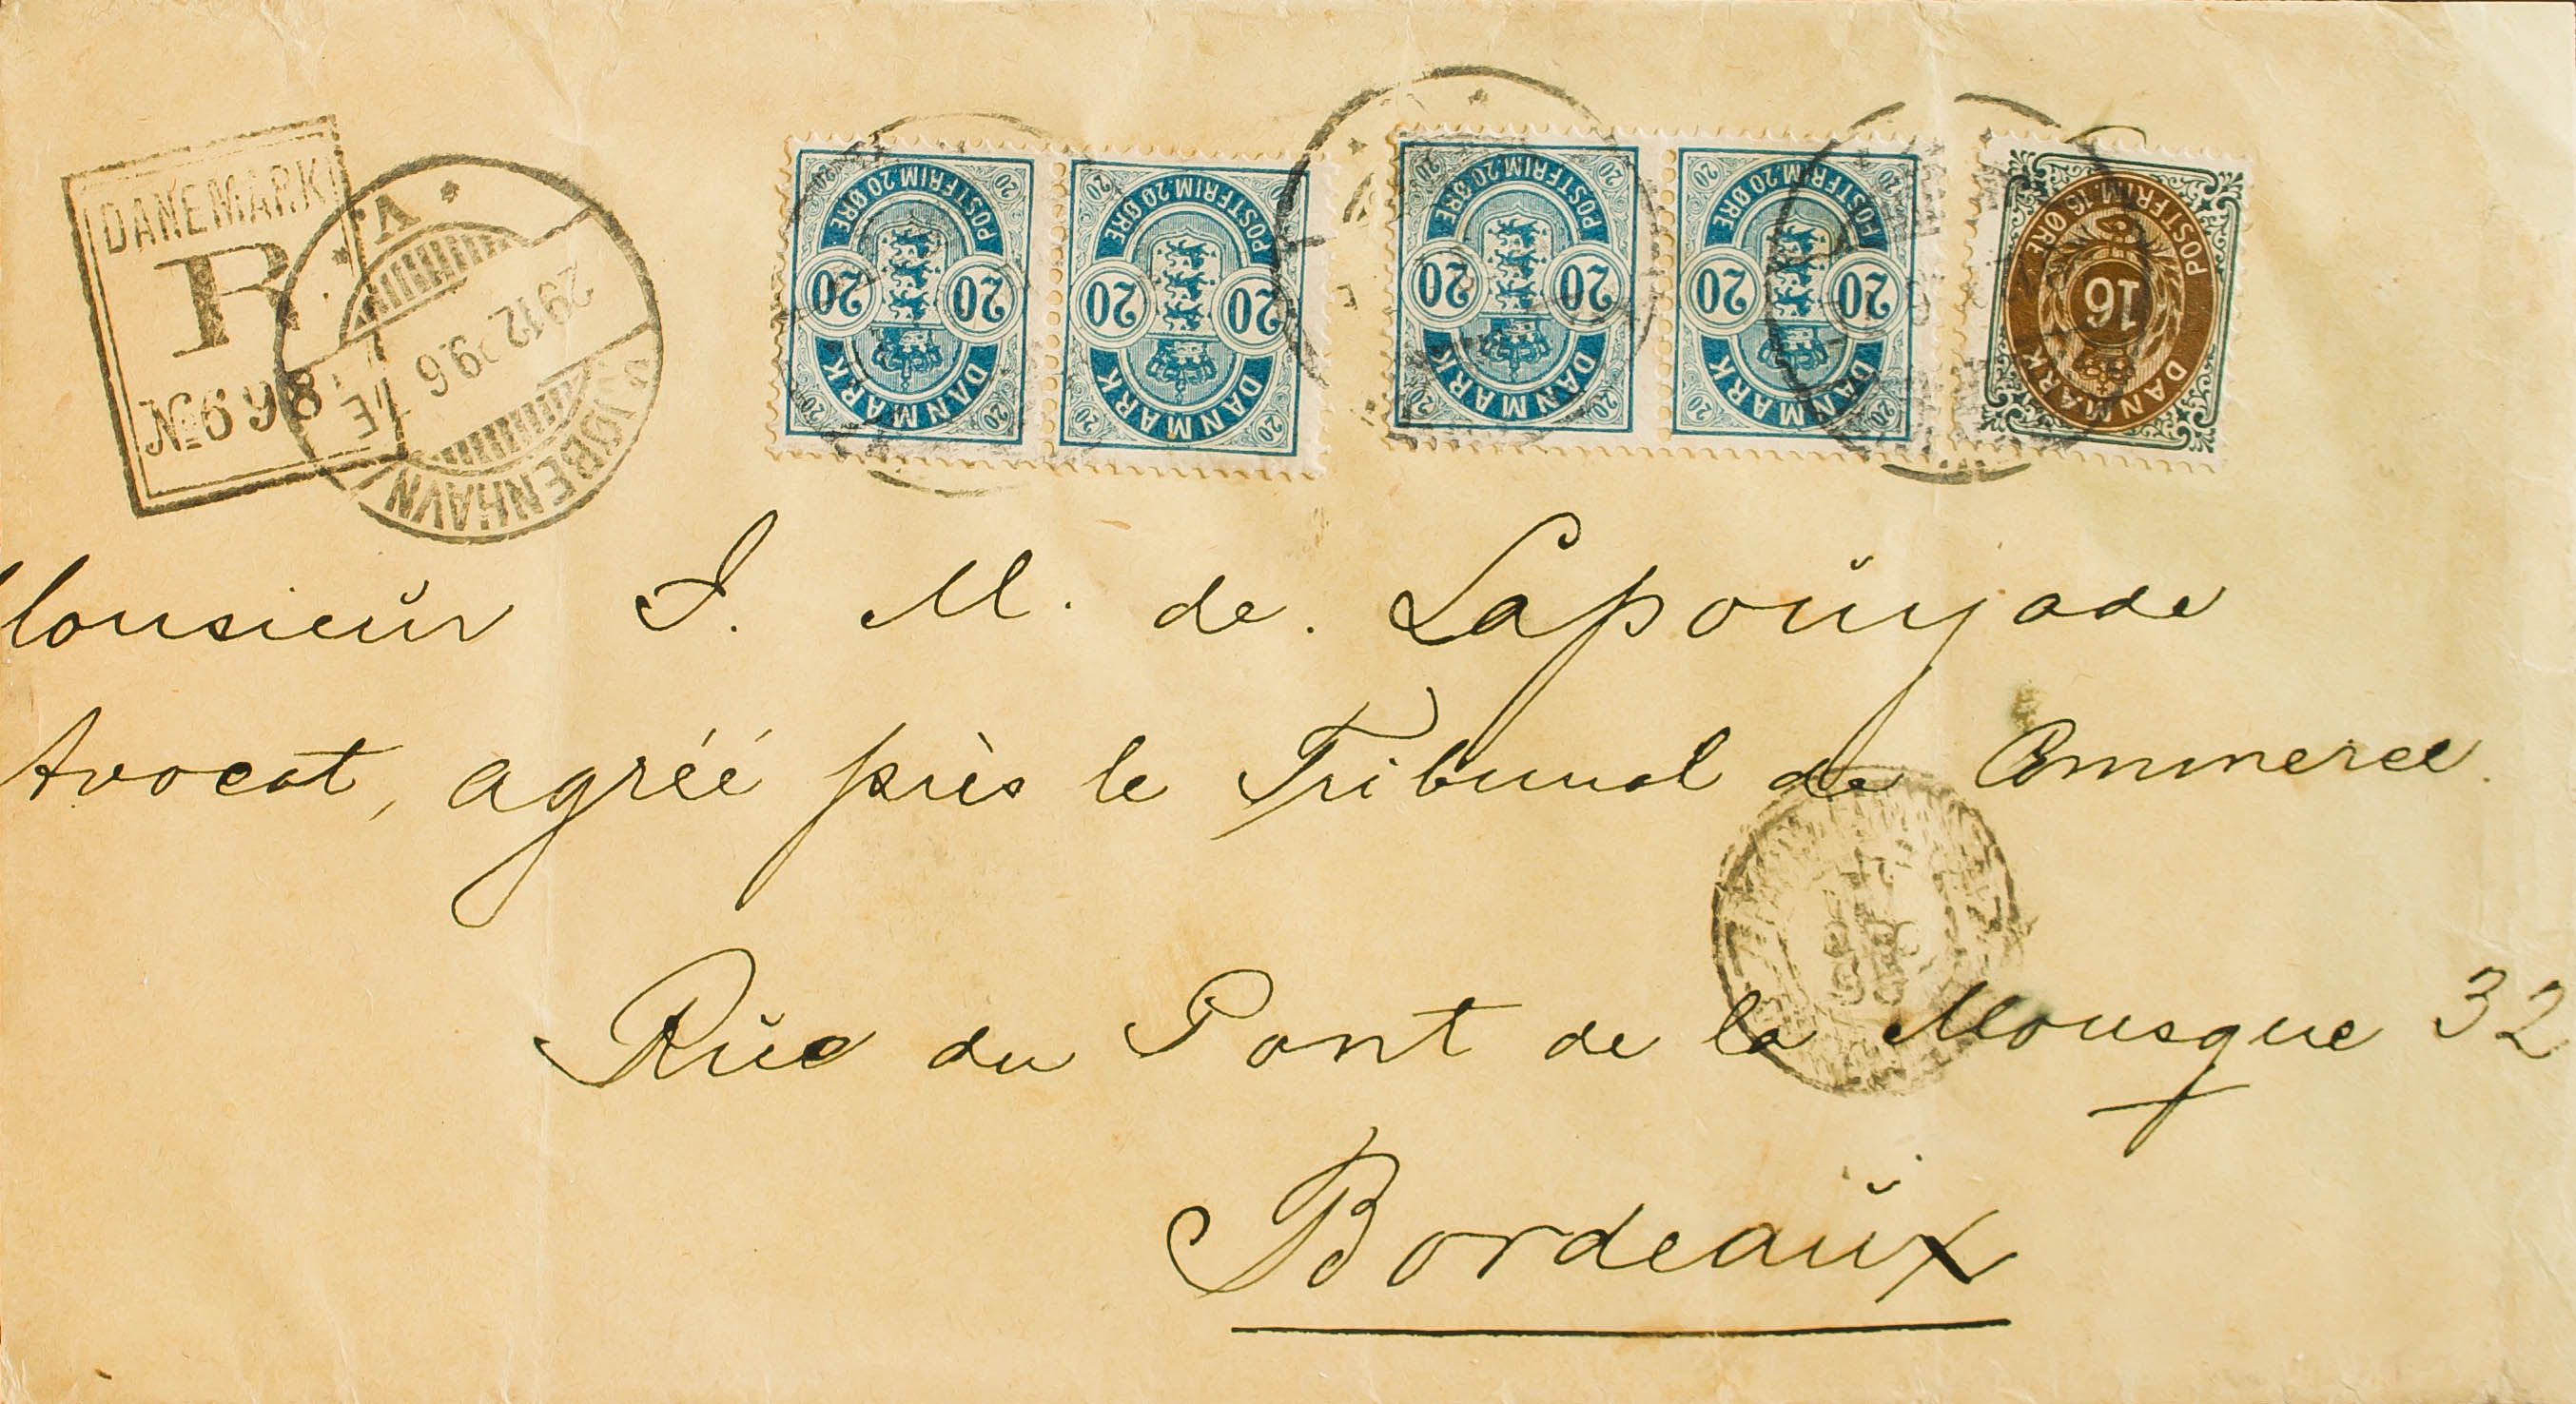 DANEMARK
R
№ 698
KJØBENHAVN V. A
29 12 96
POSTFRIM. 20 ØRE
20 20
DANMARK
POSTFRIM. 20 ØRE
20 20
DANMARK
POSTFRIM. 20 ØRE
20 20
DANMARK
POSTFRIM. 20 ØRE
20 20
DANMARK
POSTFRIM. 16 ØRE
16
DANMARK
Monsieur J. M. de. Lapouyade
Avocat, agréé près le Tribunal de Commerce.
Rue du Pont de la Mousque 32
Bordeaux